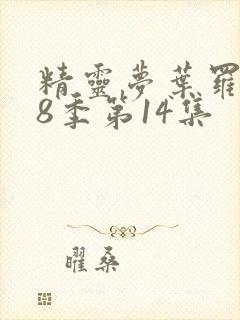 精靈夢葉羅
8季第14集
曜桑